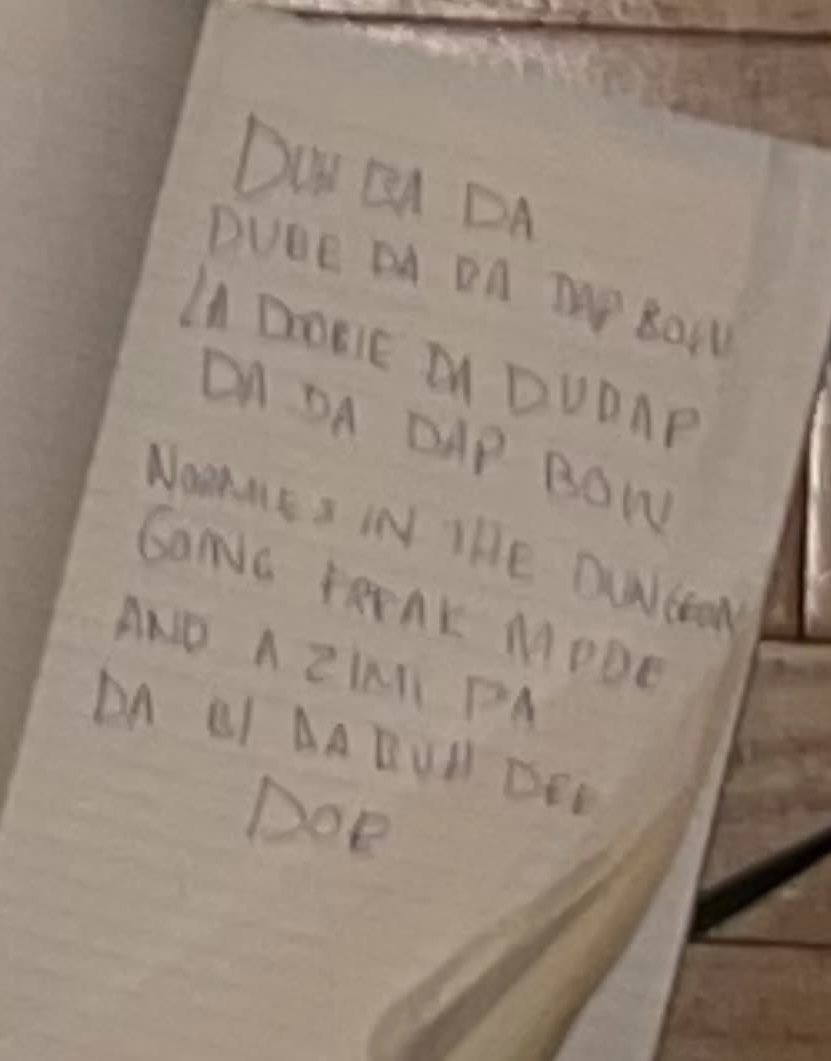 DUH BA DA
DUBE DA DA DAP BOW
LA DOOBIE DA DUDAP
DA DA DAP BOW
NORMIES IN THE DUNGEON
GOING FREAK MODE
AND A ZIMI DA
DA BI DA BUH DEE
DOE